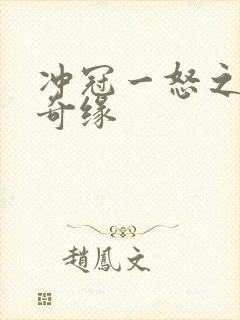 冲冠一怒之
奇缘
趙鳳文